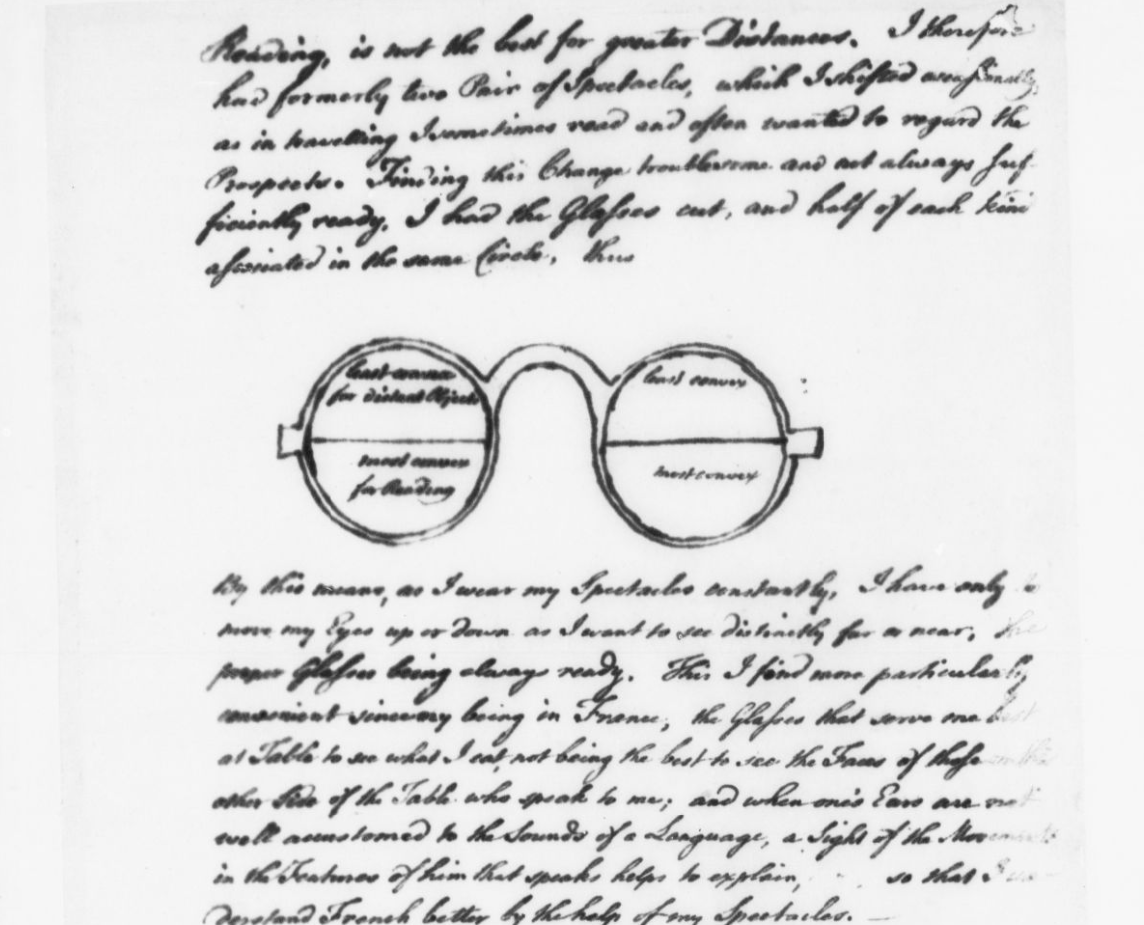 Reading, is not the best for greater Distances. I therefore
had formerly two Pair of Spectacles, which I shifted occasionally,
as in travelling I sometimes read and often wanted to regard the
Prospects. Finding this Change troublesome and not always suf-
ficiently ready, I had the Glasses cut, and half of each kind
associated in the same Circle, thus
least convex
for distant Objects
least convex
most convex
for Reading
most convex
By this means, as I wear my Spectacles constantly, I have only to
move my Eyes up or down as I want to see distinctly far or near, the
proper Glasses being always ready. This I find more particularly
convenient since my being in France; the Glasses that serve me best
at Table to see what I eat, not being the best to see the Faces of those on the
other Side of the Table who speak to me; and when one's Ears are not
well accustomed to the Sounds of a Language, a Sight of the Movements
in the Features of him that speaks helps to explain, so that I un-
derstand French better by the help of my Spectacles. —